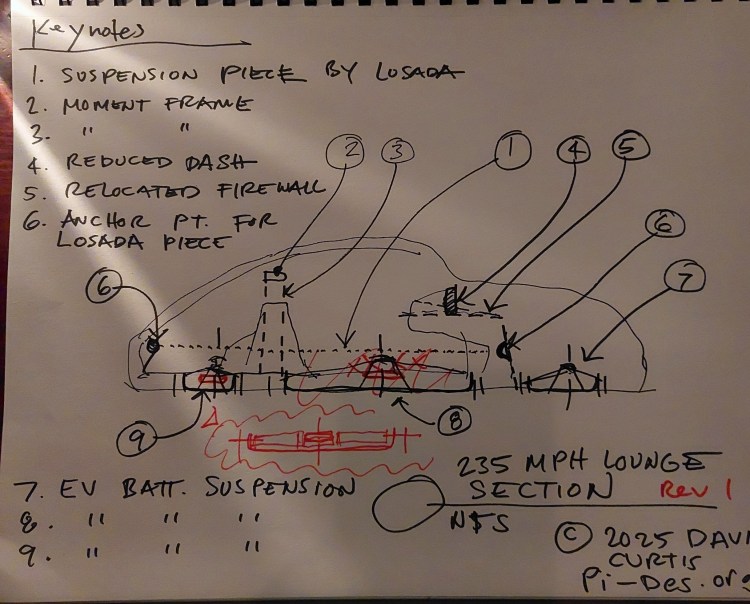 Keynotes
1. SUSPENSION PIECE BY LOSADA
2. MOMENT FRAME
3. " "
4. REDUCED DASH
5. RELOCATED FIREWALL
6. ANCHOR PT. FOR
LOSADA PIECE
2 3 1 4 5
6
6
7
9
8
7. EV BATT. SUSPENSION
8. " " "
9. " " "
235 MPH LOUNGE
SECTION Rev 1
NTS
© 2025 DAVI
CURTIS
Pi-Des.org